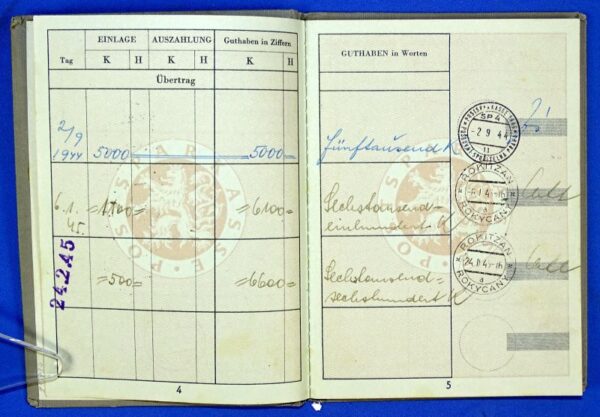 Tag EINLAGE AUSZAHLUNG Guthaben in Ziffern
K H K H K H
Übertrag
2/9
1944 5000 5000
6.1.
45. =1100= =6100=
24.2.45 =500= =6600=
POSTSPARKASSE
4
GUTHABEN in Worten
Fünftausend K
SPA
-2 9 44
11
Sechstausend=
einhundert K
ROKITZAN
ROKYCANY
Sechstausend=
sechshundert K
ROKITZAN
a
ROKYCANY
5